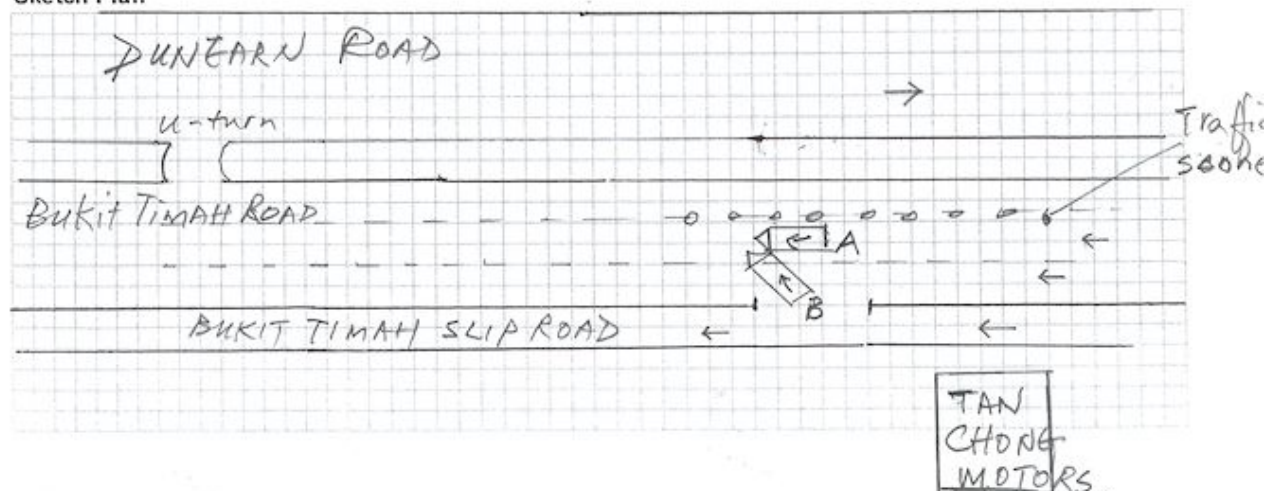 DUNEARN ROAD
u-turn
Traffic
BUKIT TIMAH ROAD
A
B
BUKIT TIMAH SLIP ROAD
TAN
CHONG
MOTORS